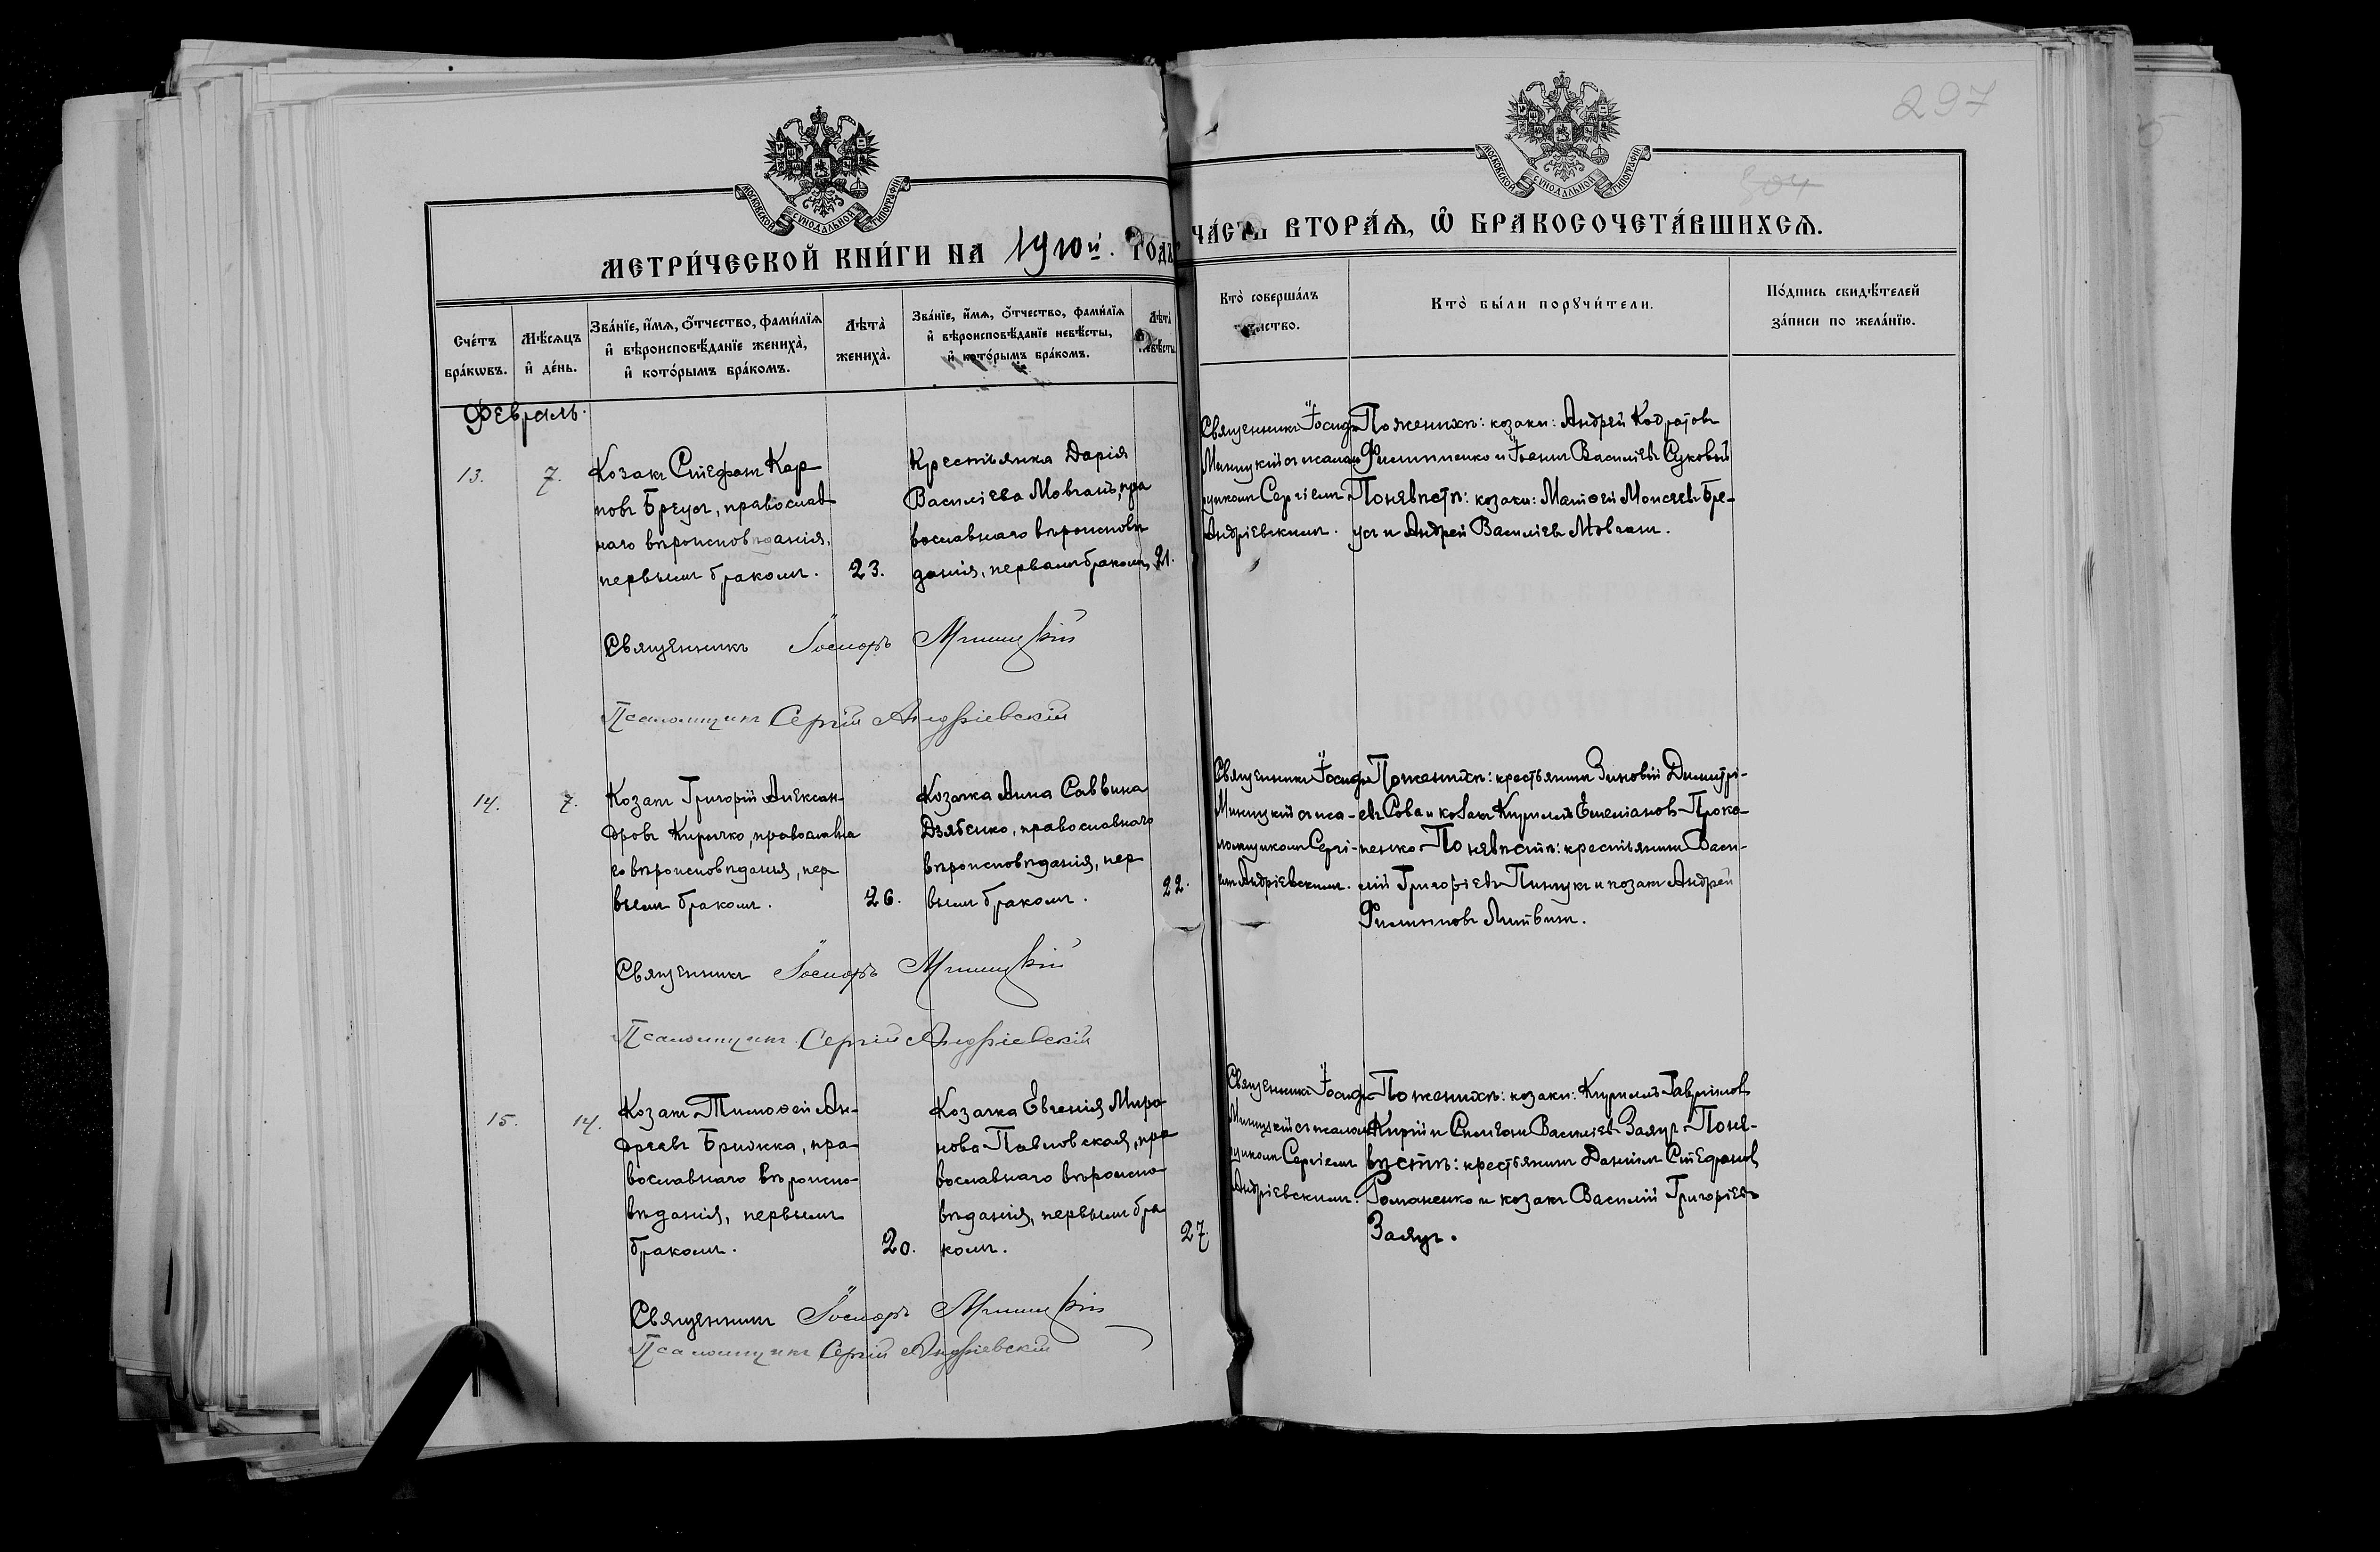 297
504
МОСКОВСКОЙ СУНОДАЛЬНОЙ ТИПОГРАФІИ
МОСКОВСКОЙ СУНОДАЛЬНОЙ ТИПОГРАФІИ
МЕТРИ́ЧЕСКОЙ КНИ́ГИ НА 1910й. ГО́ДЪ
ЧА́СТЬ ВТОРА́Ѧ, Ѡ҆ БРАКОСОЧЕТА́ВШИХСѦ.
Сче́тъ
бра́кωвъ.
Мѣ́сѧцъ
и҆ де́нь.
Зва́нїе, и҆́мѧ, ѻ҆́тчество, фами́лїѧ
и҆ вѣроисповѣ́данїе жениха̀,
и҆ кото́рымъ бра́комъ.
Лѣта̀
жениха̀.
Зва́нїе, и҆́мѧ, ѻ҆́тчество, фами́лїѧ
и҆ вѣроисповѣ́данїе невѣ́сты,
и҆ кото́рымъ бра́комъ.
Лѣта̀
невѣ́сты
Кто̀ соверша́лъ
Кто̀ бы́ли порꙋчи́тели.
По́дпись свидѣ́телей
за́писи по жела́нїю.
Февраль.
13.
7.
Козакъ Стефанъ Кар
повъ Бреусъ, православ
наго вѣроисповѣданія,
первымъ бракомъ.
23.
Крестьянка Дарія
Василіева Мовчанъ, пра
вославнаго вѣроисповѣ
данія, первымъ бракомъ,
21.
Священникъ Іосифъ
Мшицкій съ псалом
щикомъ Сергіемъ
Андріевскимъ.
По женихѣ: козаки: Андрей Кодратовъ
Филипленко и Іоаннъ Василіевъ Суковый
По невѣстѣ: козаки: Матѳей Моисеевъ Бре-
усъ и Андрей Василіевъ Мовчанъ.
Священникъ Іосифъ Мшицкій
Псаломщикъ Сергій Андріевскій
14.
7.
Козакъ Григорій Алексан-
дровъ Киричко, православна
го вѣроисповѣданія, пер
вымъ бракомъ.
26.
Козачка Анна Саввина
Дзябенко, православнаго
вѣроисповѣданія, пер
вымъ бракомъ.
22.
Священникъ Іосифъ
Мшицкій съ пса-
ломщикомъ Сергі-
емъ Андріевскимъ.
По женихѣ: крестьянинъ Зиновій Димитрі-
евъ Сова и козакъ Кириллъ Емеліановъ Проко-
пенко. По невѣстѣ: крестьянинъ Васи-
лій Григоріевъ Пинчукъ и козакъ Андрей
Филипповъ Литвинъ.
Священникъ Іосифъ Мшицкій
Псаломщикъ Сергій Андріевскій
15.
14.
Козакъ Тимоѳей Ан-
дреевъ Брижка, пра
вославнаго вѣроиспо-
вѣданія, первымъ
бракомъ.
20.
Козачка Евгенія Миро
нова Павловская, пра
вославнаго вѣроиспо
вѣданія, первымъ бра
комъ.
27.
Священникъ Іосифъ
Мшицкій съ псалом
щикомъ Сергіемъ
Андріевскимъ.
По женихѣ: козаки: Кириллъ Гавріиловъ
Кирій и Симеонъ Василіевъ Заяцъ. По не-
вѣстѣ: крестьянинъ Даніилъ Стефановъ
Романенко и козакъ Василій Григоріевъ
Заяцъ.
Священникъ Іосифъ Мшицкій
Псаломщикъ Сергій Андріевскій